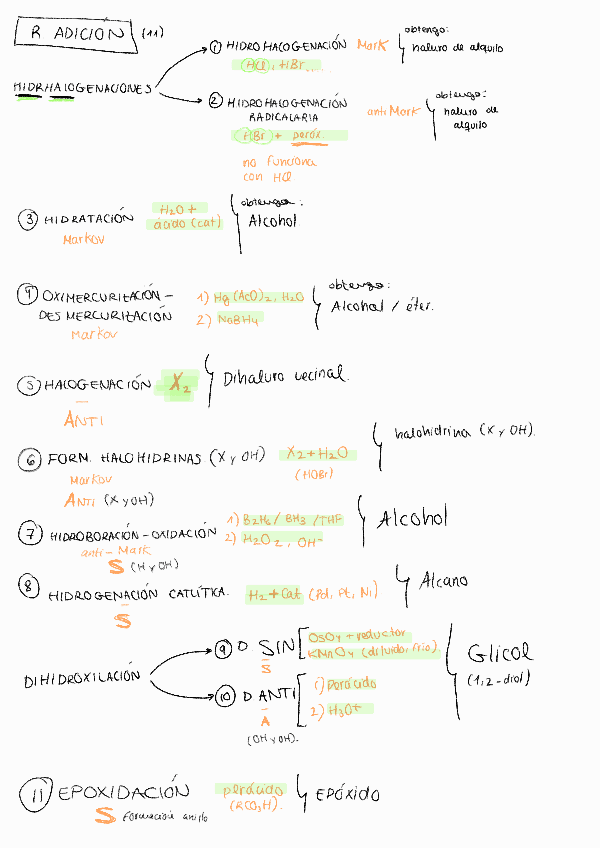 R ADICIÓN (11)
HIDRHALOGENACIONES
① HIDROHALOGENACIÓN Mark
HCl, HBr....
obtengo:
haluro de alquilo
② HIDROHALOGENACIÓN
RADICALARIA
HBr + peróx.
no funciona
con HCl
anti Mark
obtengo:
haluro de
alquilo
③ HIDRATACIÓN
Markov
H2O +
ácido (cat)
obtengo:
Alcohol
④ OXIMERCURIZACIÓN-
DESMERCURIZACIÓN
Markov
1) Hg(AcO)2, H2O
2) NaBH4
obtengo:
Alcohol / éter.
⑤ HALOGENACIÓN X2
ANTI
Dihaluro vecinal.
⑥ FORM. HALOHIDRINAS (X y OH)
Markov
ANTI (X y OH)
X2 + H2O
(HOBr)
halohidrina (X y OH).
⑦ HIDROBORACIÓN-OXIDACIÓN
anti-Mark
S (H y OH)
1) B2H6 / BH3 / THF
2) H2O2, OH-
Alcohol
⑧ HIDROGENACIÓN CATLÍTICA.
S
H2 + Cat (Pd, Pt, Ni)
Alcano
DIHIDROXILACIÓN
⑨ D. SIN
S
OsO4 + reductor
KMnO4 (diluido, frío).
⑩ D ANTI
A
(OH y OH).
1) Perácido
2) H3O+
Glicol
(1,2-diol)
⑪ EPOXIDACIÓN
S Formación anillo
perácido
(RCO3H).
EPÓXIDO